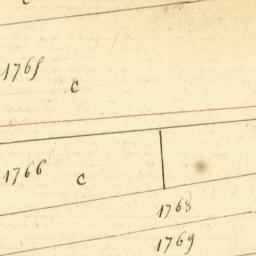 1765 c
1766 c
1768
1769